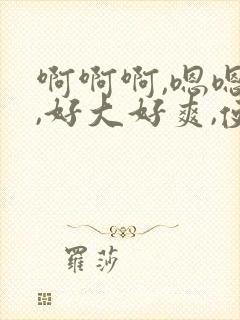 啊啊啊,嗯嗯
,好大好爽,
羅莎